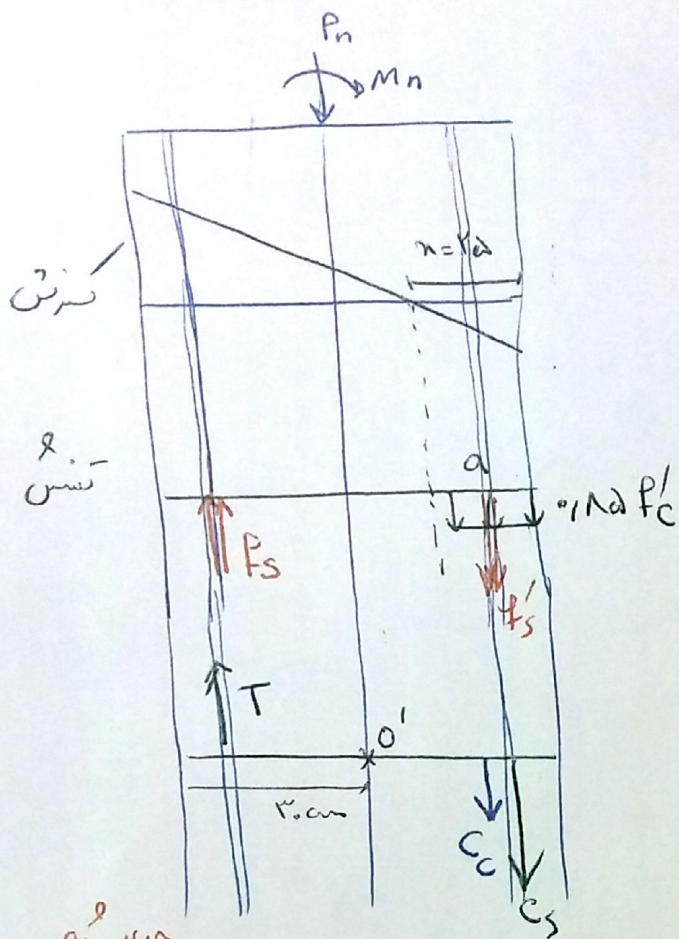 Pn
Mn
x=۲۵
کرنش
تنش
a
۰,۸۵ f'c
fs
f's
T
o'
۳۰cm
Cc
Cs